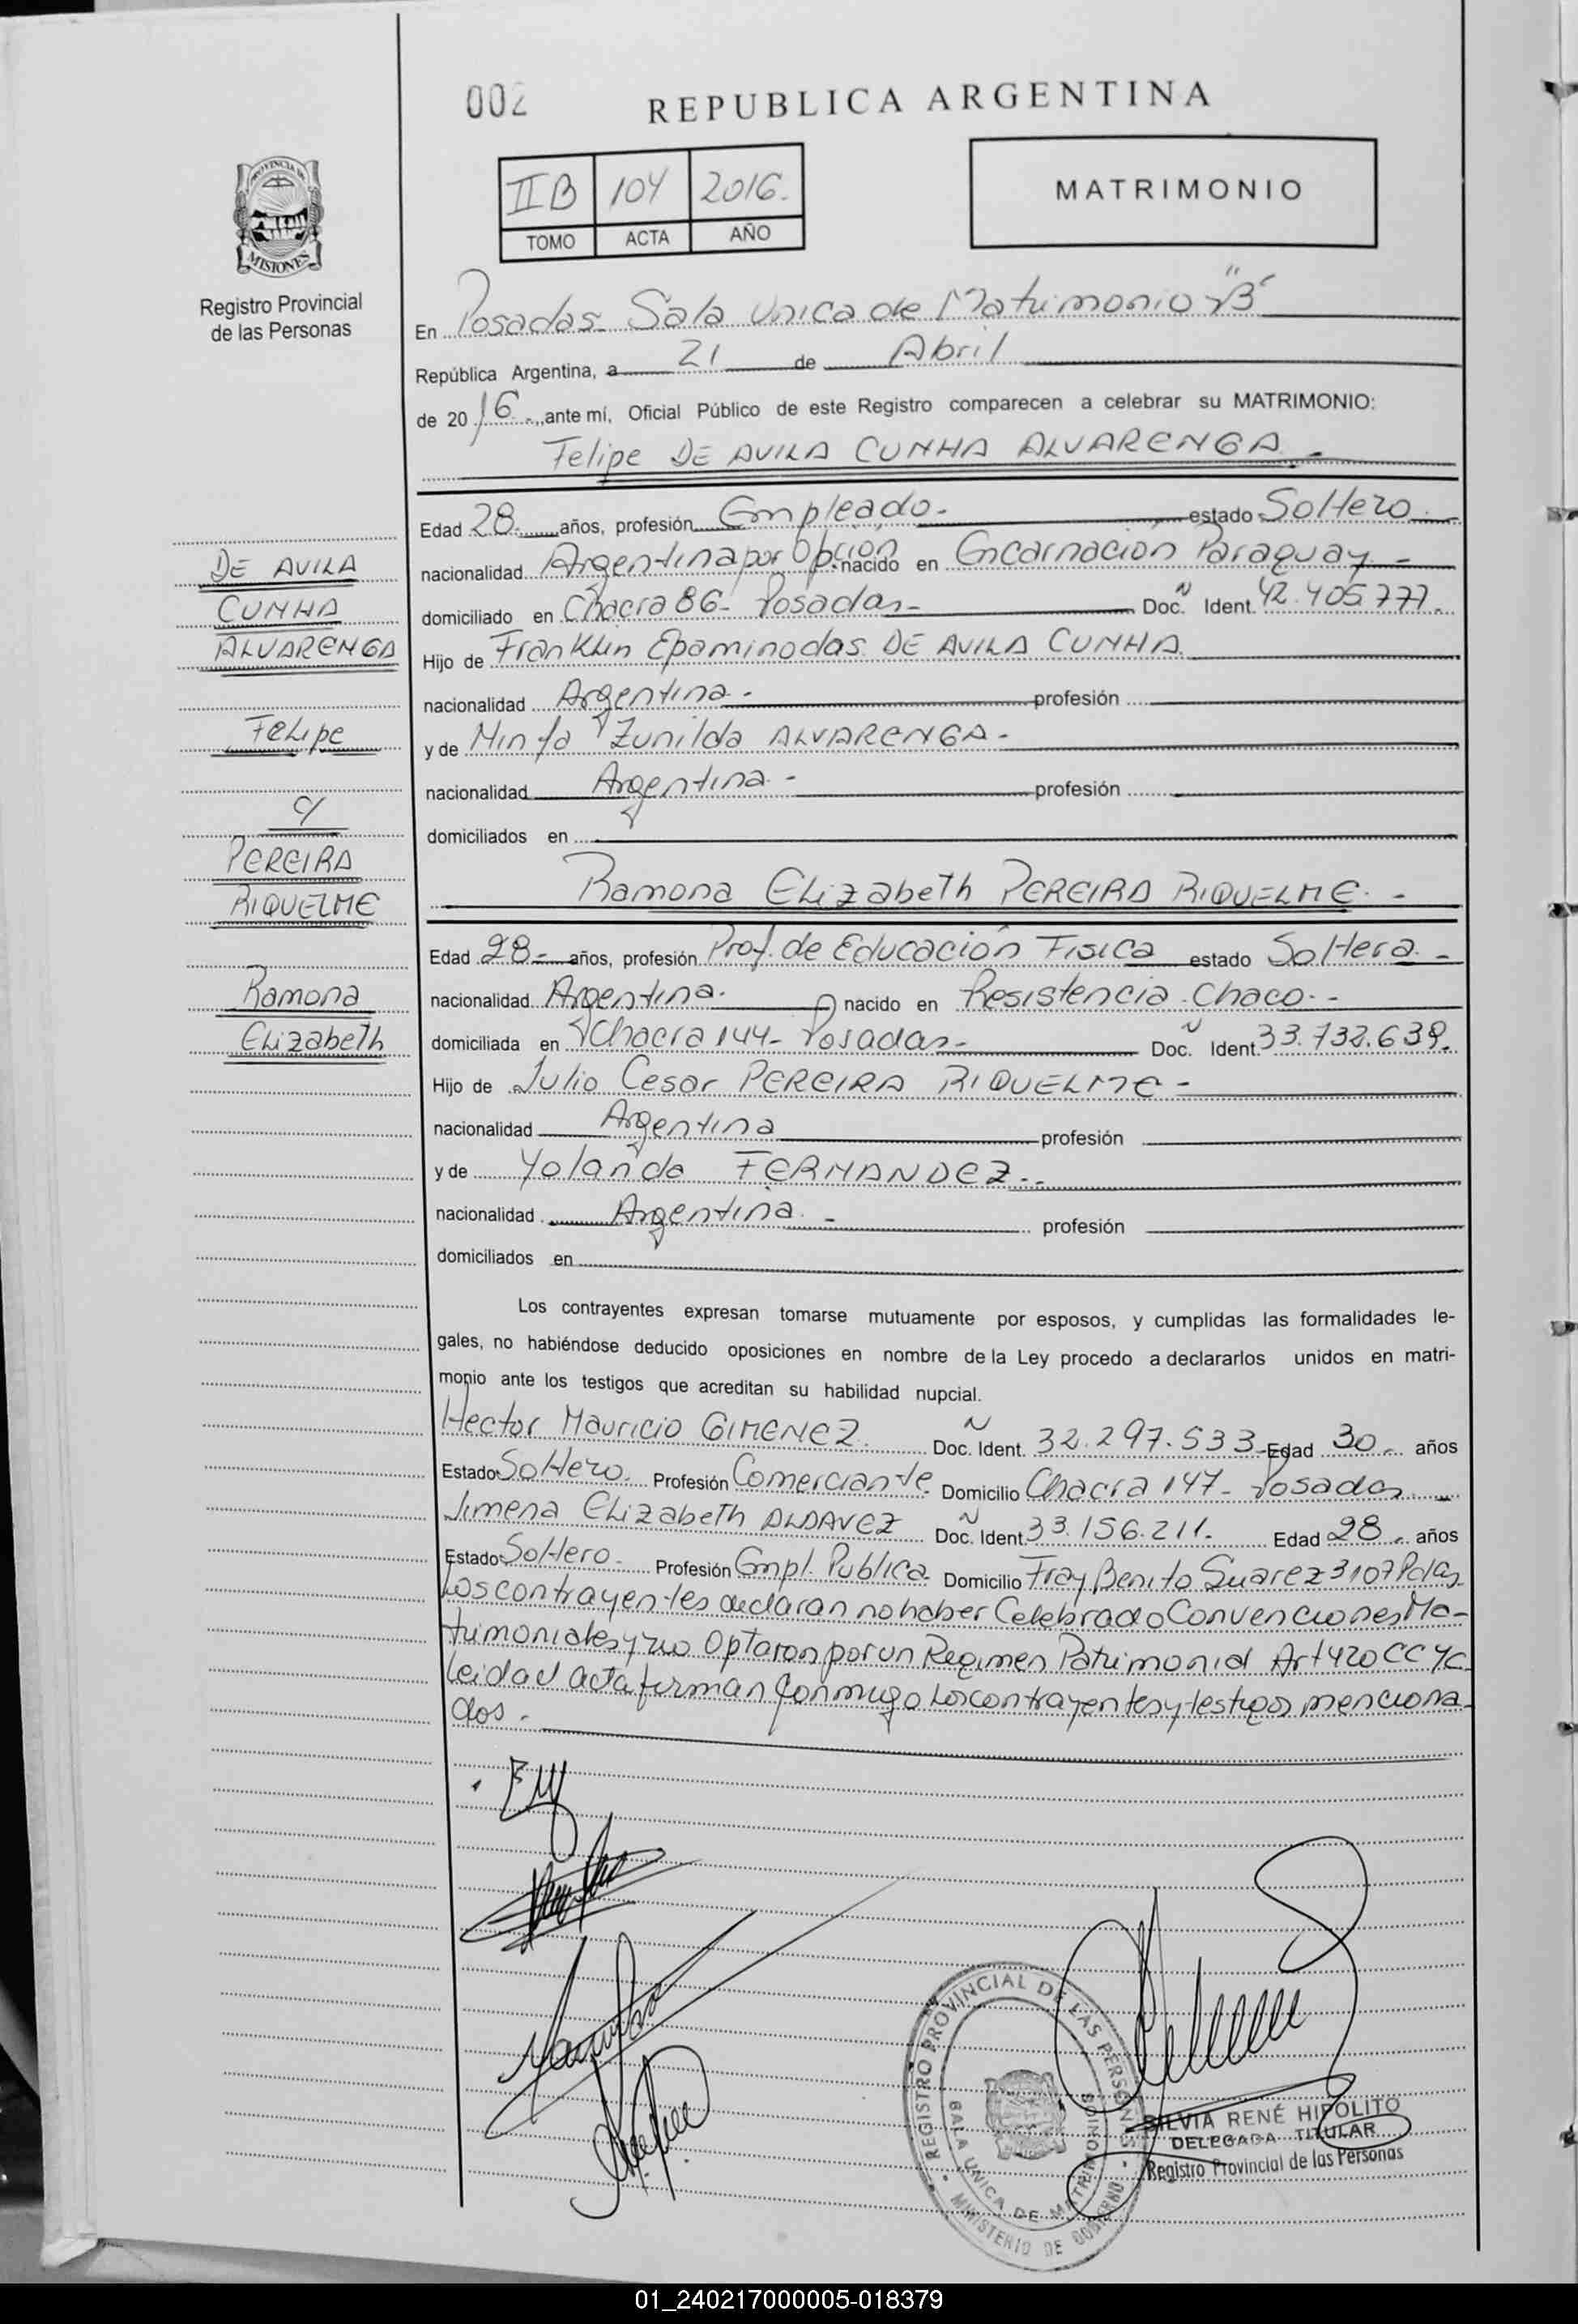 002
REPUBLICA ARGENTINA
IIB 104 2016.
TOMO ACTA AÑO
MATRIMONIO
PROVINCIA DE
MISIONES
Registro Provincial
de las Personas
En Posadas Sala Unica de Matrimonio "B"
República Argentina, a 21 de Abril
de 2016.-, ante mí, Oficial Público de este Registro comparecen a celebrar su MATRIMONIO:
Felipe DE AVILA CUNHA ALVARENGA.-
Edad 28.- años, profesión Empleado.- estado Soltero.-
nacionalidad Argentina por Opción nacido en Encarnación Paraguay-
domiciliado en Chacra 86- Posadas- Doc. Ident. N 42.405.777.
Hijo de Franklin Epaminodas DE AVILA CUNHA.
nacionalidad Argentina.- profesión
y de Minfa Zunilda ALVARENGA-
nacionalidad Argentina.- profesión
domiciliados en
DE AVILA
CUNHA
ALVARENGA
Felipe
c/
PEREIRA
RIQUELME
Ramona
Elizabeth
Ramona Elizabeth PEREIRA RIQUELME.-
Edad 28- años, profesión Prof. de Educación Fisica estado Soltera.-
nacionalidad Argentina. nacido en Resistencia. Chaco.-
domiciliada en Chacra 144- Posadas- Doc. Ident. N 33.732.639.
Hijo de Julio Cesar PEREIRA RIQUELME-
nacionalidad Argentina profesión
y de Yolanda FERNANDEZ.-
nacionalidad Argentina.- profesión
domiciliados en
Los contrayentes expresan tomarse mutuamente por esposos, y cumplidas las formalidades le-
gales, no habiéndose deducido oposiciones en nombre de la Ley procedo a declararlos unidos en matri-
monio ante los testigos que acreditan su habilidad nupcial.
Hector Mauricio GIMENEZ. Doc. Ident. N 32.297.533- Edad 30.- años
Estado Soltero. Profesión Comerciante. Domicilio Chacra 147- Posadas.
Jimena Elizabeth ALDAVEZ Doc. Ident. N 33.156.211. Edad 28.- años
Estado Soltero. Profesión Empl. Publica. Domicilio Fray Benito Suarez 3107 Pdas
Los contrayentes declaran no haber Celebrado Convenciones Ma-
trimoniales y no Optaron por un Regimen Patrimonial Art 420 CCYC
Leida el acta firman conmigo los contrayentes y testigos menciona-
dos.-
REGISTRO PROVINCIAL DE LAS PERSONAS
SALA UNICA DE MATRIMONIOS
MINISTERIO DE GOBIERNO
SILVIA RENÉ HIPÓLITO
DELEGADA TITULAR
Registro Provincial de las Personas
01_240217000005-018379